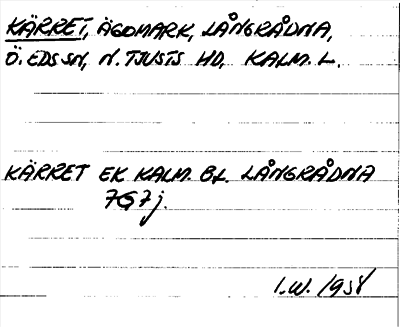 KÄRRET, ÄGOMARK, LÅNGRÅDNA,
Ö. EDS SN, N. TJUSTS HD, KALM. L.
KÄRRET EK KALM. BL. LÅNGRÅDNA
7G7j.
I.W. 1958